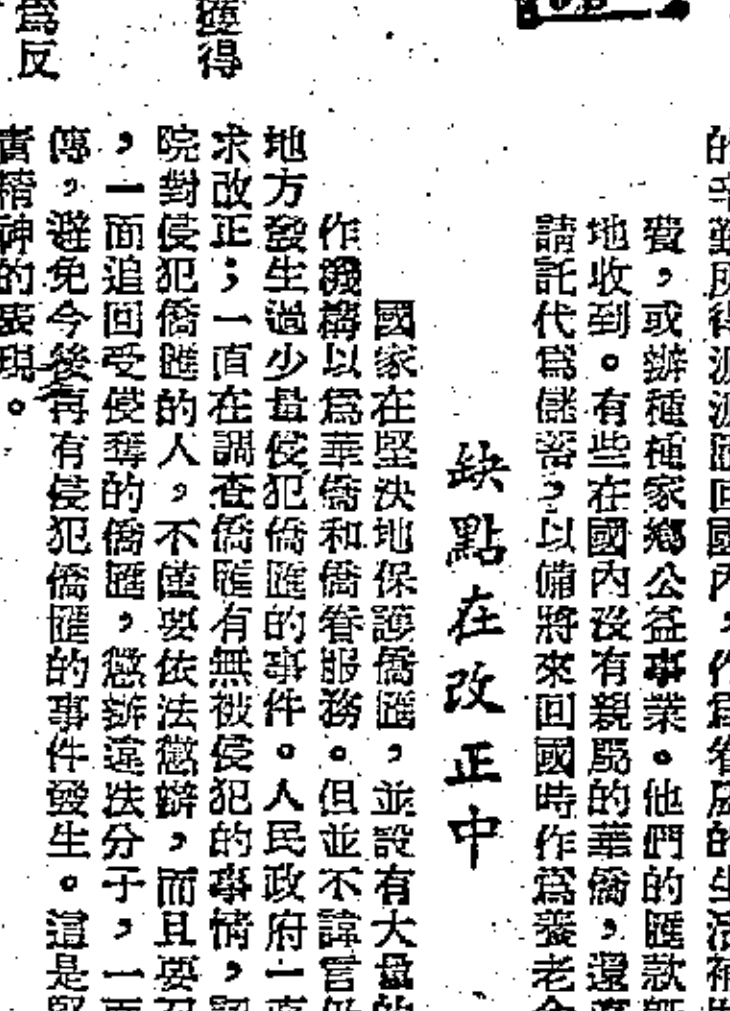 的辛勤所得源源匯回國內,作爲眷屬的生活補
費,或辦種種家鄉公益事業。他們的匯款
地收到。有些在國內沒有親屬的華僑,還
請託代爲儲蓄,以備將來回國時作爲養老
缺點在改正中
國家在堅決地保護僑匯,並設有大量的
作機構以爲華僑和僑眷服務。但並不諱言
地方發生過少量侵犯僑匯的事件。人民政府一直
求改正;一直在調查僑匯有無被侵犯的事情,
院對侵犯僑匯的人,不僅要依法懲辦,而且要
,一面追回受侵奪的僑匯,懲辦違法分子,一面
傳,避免今後再有侵犯僑匯的事件發生。這是
責精神的表現。
獲得
爲反